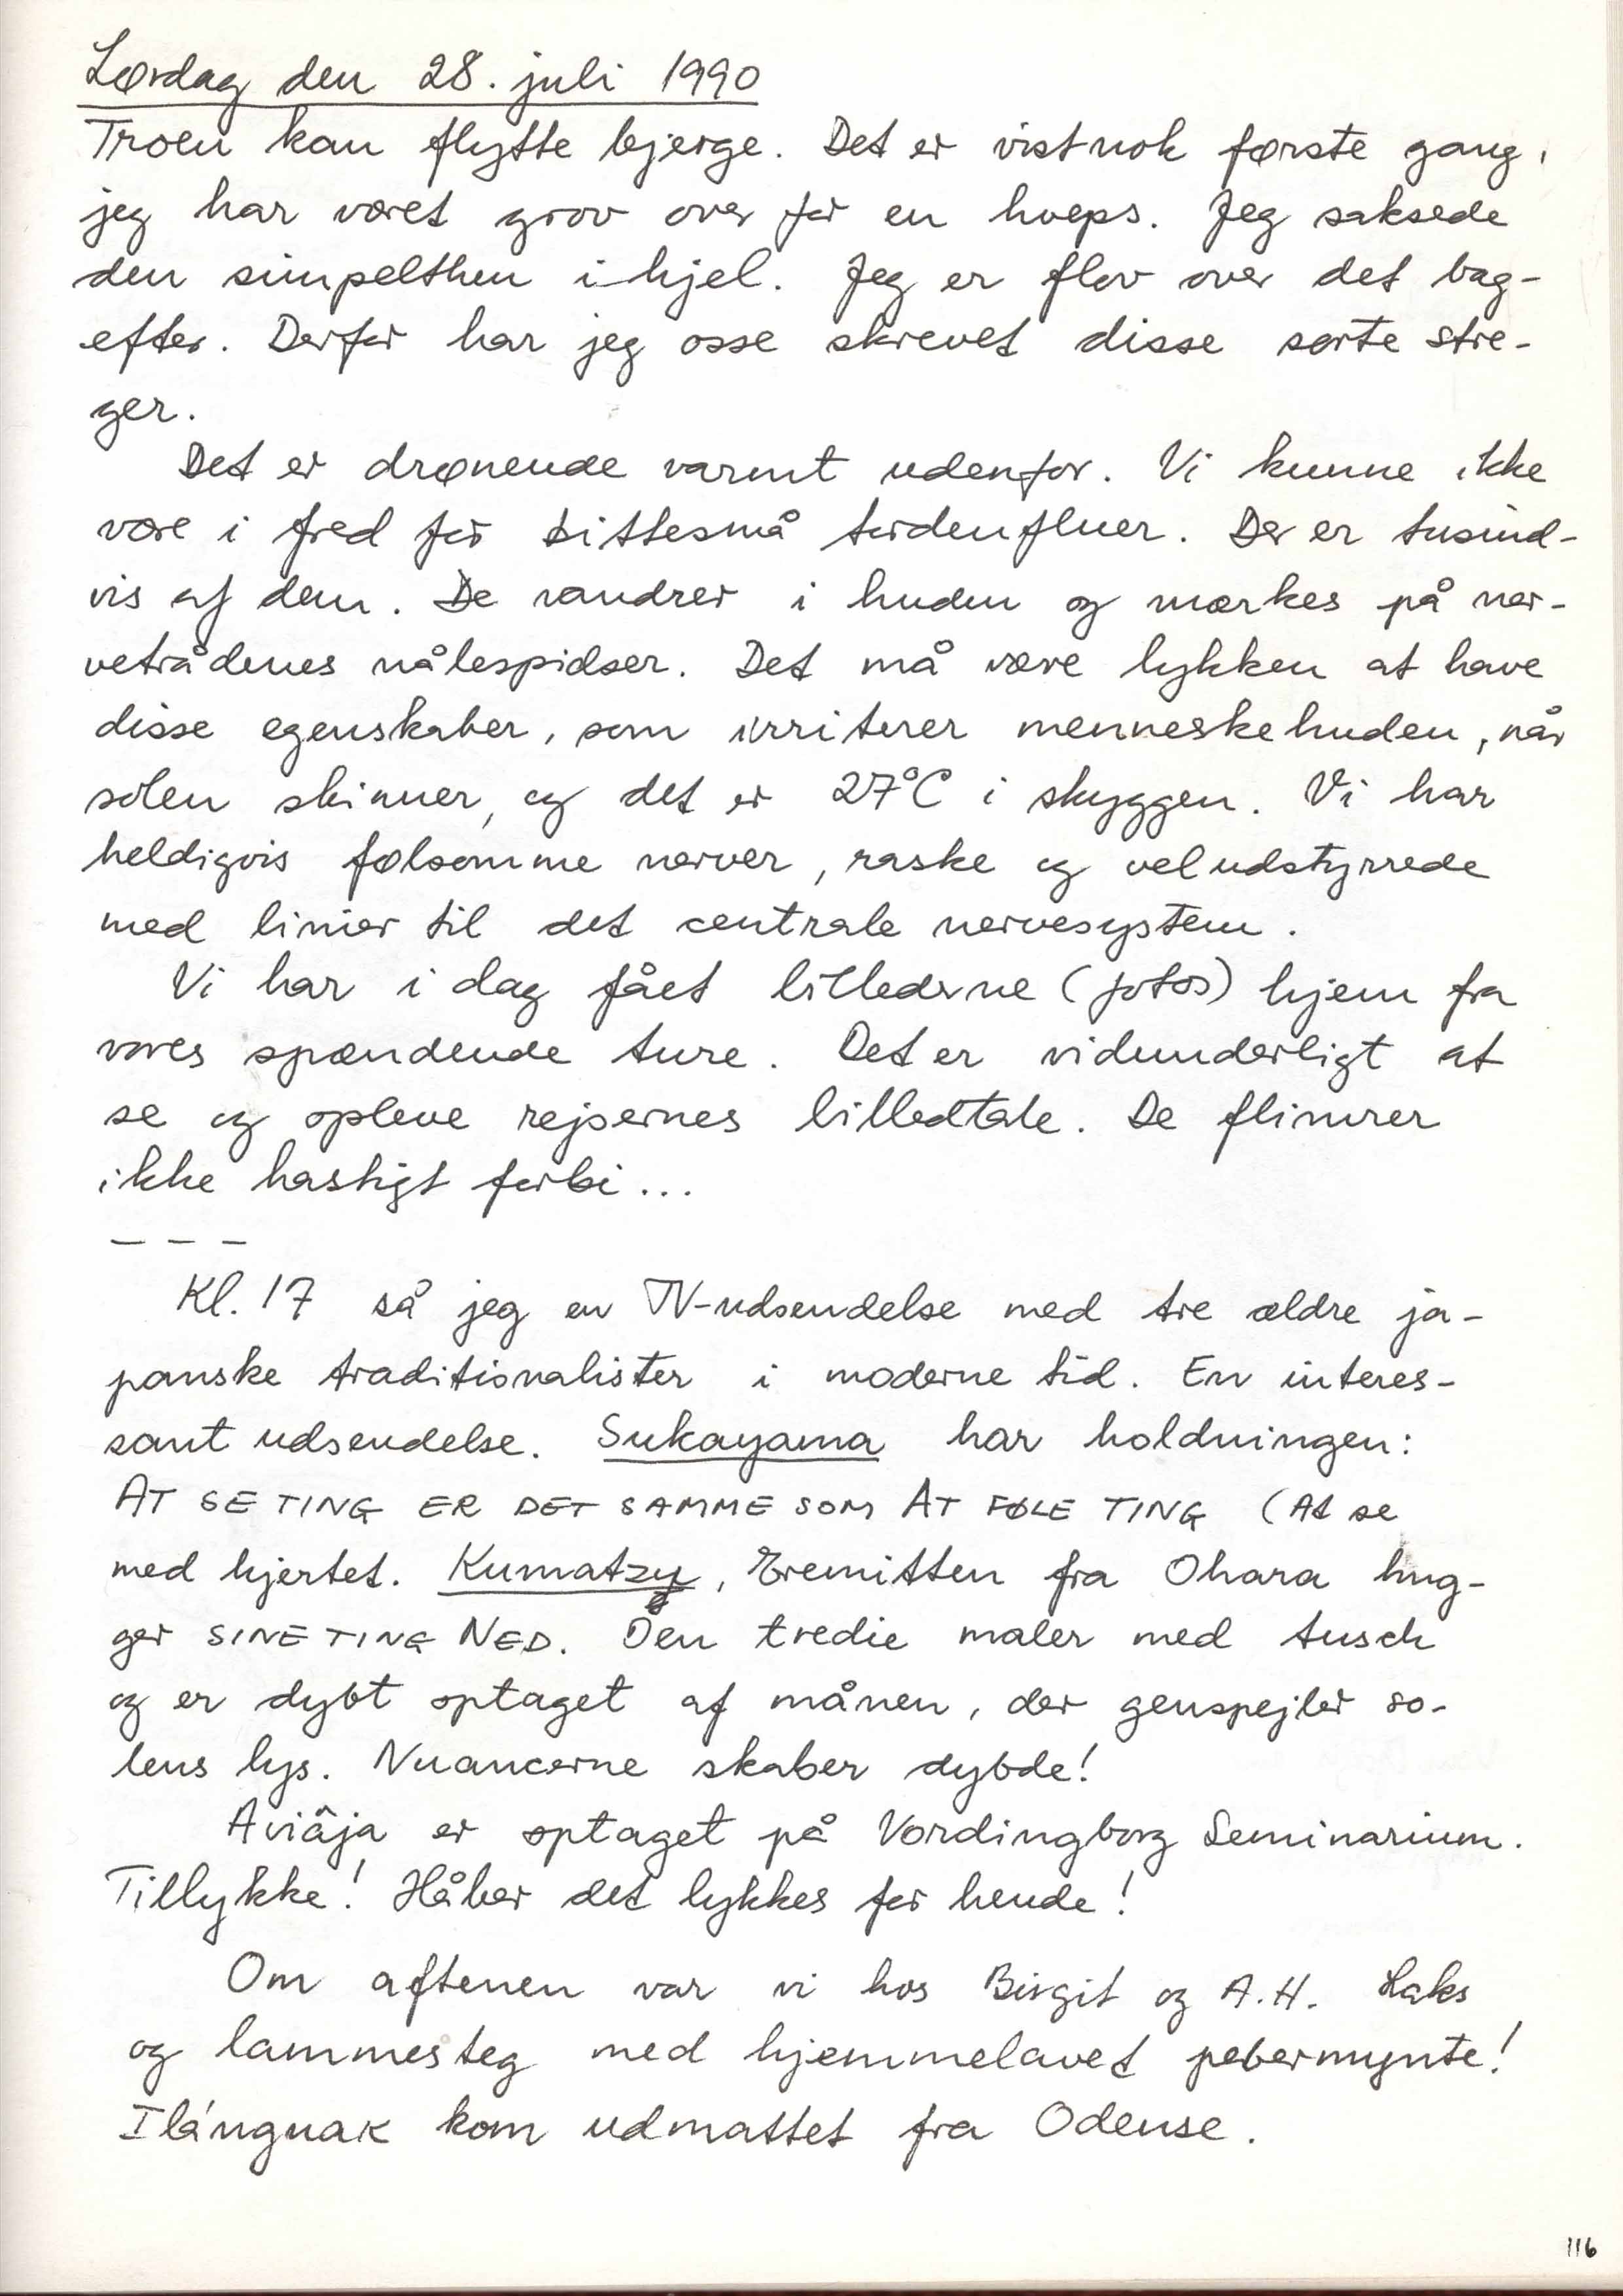 Lørdag den 28. juli 1990
Troen kan flytte bjerge. Det er vistnok første gang,
jeg har været grov over for en hveps. Jeg saksede
den simpelthen ihjel. Jeg er flov over det bag-
efter. Derfor har jeg osse skrevet disse sorte stre-
ger.
Det er drønende varmt udenfor. Vi kunne ikke
være i fred for bittesmå tordenfluer. Der er tusind-
vis af dem. De vandrer i huden og mærkes på ner-
vetrådenes nålespidser. Det må være lykken at have
disse egenskaber, som irriterer menneskehuden, når
solen skinner, og det er 27°C i skyggen. Vi har
heldigvis følsomme nerver, raske og veludstyrrede
med linier til det centrale nervesystem.
Vi har i dag fået billederne (fotos) hjem fra
vores spændende ture. Det er vidunderligt at
se og opleve rejsernes billedtale. De flimrer
ikke hastigt forbi...
– – –
Kl. 17 så jeg en TV-udsendelse med tre ældre ja-
panske traditionalister i moderne tid. En interes-
sant udsendelse. Sukayama har holdningen:
AT SE TING ER DET SAMME SOM AT FØLE TING (At se
med hjertet. Kumatzy, Eremitten fra Ohara hug-
ger SINE TING NED. Den tredie maler med tusch
og er dybt optaget af månen, der genspejler so-
lens lys. Nuancerne skaber dybde!
Aviâja er optaget på Vordingborg Seminarium.
Tillykke! Håber det lykkes for hende!
Om aftenen var vi hos Birgit og A.H. Laks
og lammesteg med hjemmelavet pebermynte!
Ilánguak kom udmattet fra Odense.
116